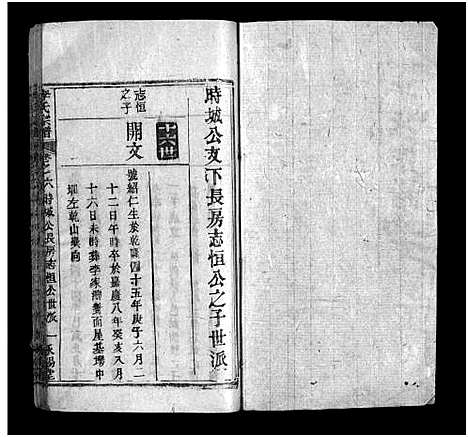 時城公支下長房志恒公之子世派
十六世
志恒
之子
開文
號紹仁生於乾隆四十五年庚子六月二
十二日午時卒於嘉慶八年癸亥八月
十六日未時葬李家灣蟹面屋基塆中
壠左乾山巽向
氏宗譜 卷之六 時城公長房志恒公世派 一